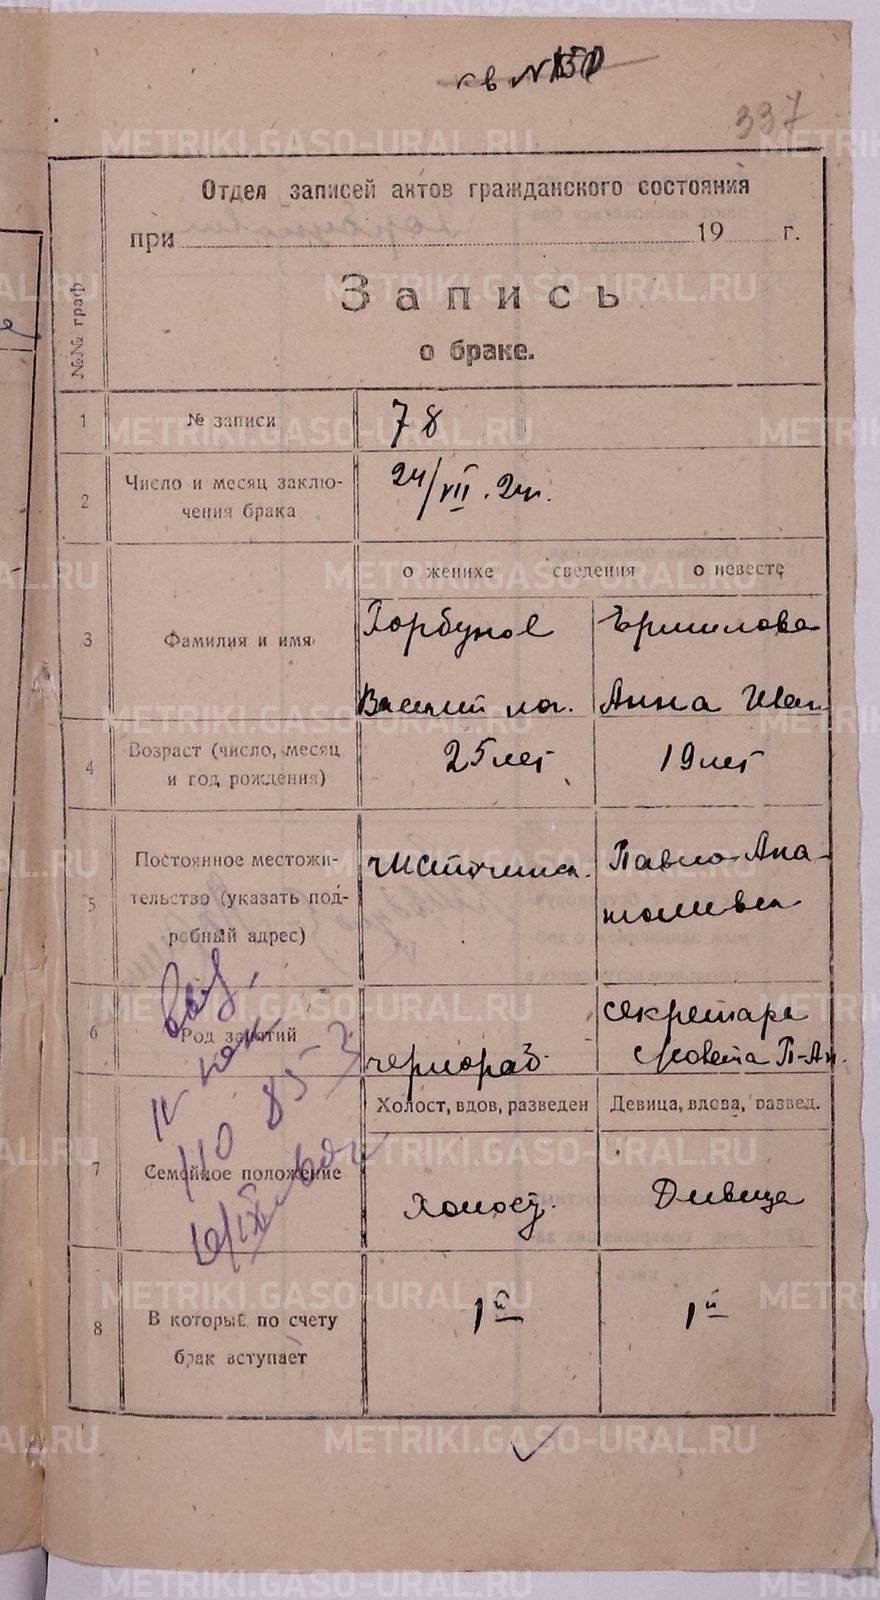 337
Отдел записей актов гражданского состояния
при 19 г.
Запись
о браке.
№№ граф
1 № записи 78
2 Число и месяц заклю-
чения брака 24/VII.24г.
о женихе сведения о невесте
3 Фамилия и имя Горбунов Ершилова
Анна Иван
4 Возраст (число, месяц
и год рождения) 25 лет 19 лет
5 Постоянное местожи-
тельство (указать под-
робный адрес)
Павло-Ана-
толивск
6 Род занятий чернораб. секретарь
Совета П-Ан.
Холост, вдов, разведен Девица, вдова, развед.
7 Семейное положение Холост. Девица
8 В который по счету
брак вступает 1й 1й
METRIKI.GASO-URAL.RU